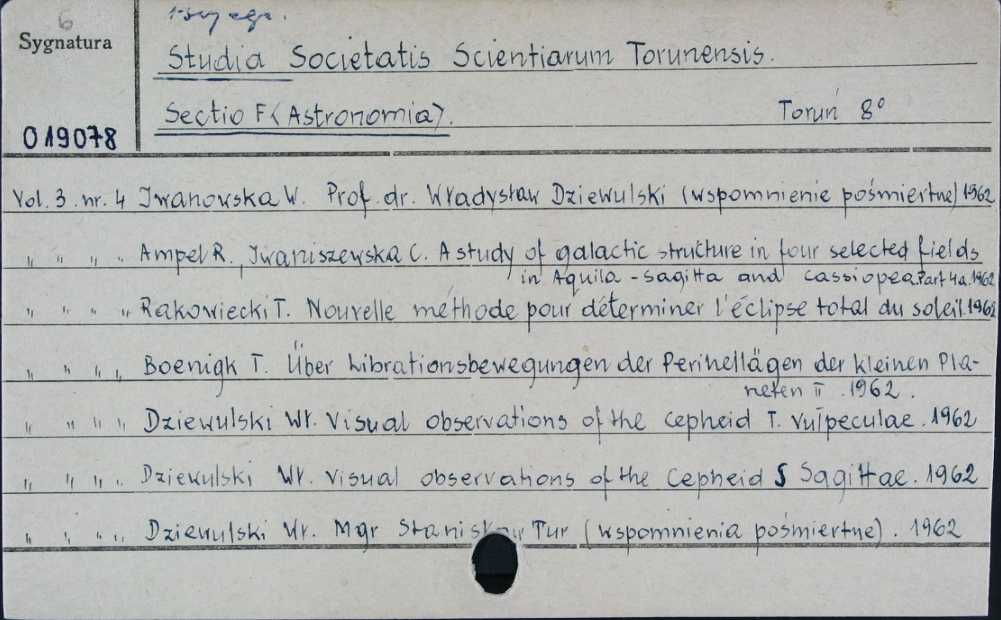 6
Sygnatura
Studia Societatis Scientiarum Torunensis.
Sectio F (Astronomia). Toruń 8°
019078
Vol. 3 nr. 4 Iwanowska W. Prof. dr. Władysław Dziewulski (wspomnienie pośmiertne) 1962
" " " " Ampel R., Iwaniszewska C. A study of galactic structure in four selected fields
in Aquila - Sagitta and Cassiopea. Part 4a. 1962
" " " " Rakowiecki T. Nouvelle méthode pour déterminer l'éclipse total du soleil. 1962
" " " " Boenigk T. Über Librationsbewegungen der Perihellägen der kleinen Pla-
neten II. 1962.
" " " " Dziewulski Wł. Visual observations of the Cepheid T. Vulpeculae. 1962
" " " " Dziewulski Wł. Visual observations of the Cepheid S Sagittae. 1962
" " " " Dziewulski Wł. Mgr Stanisław Tur (wspomnienia pośmiertne). 1962